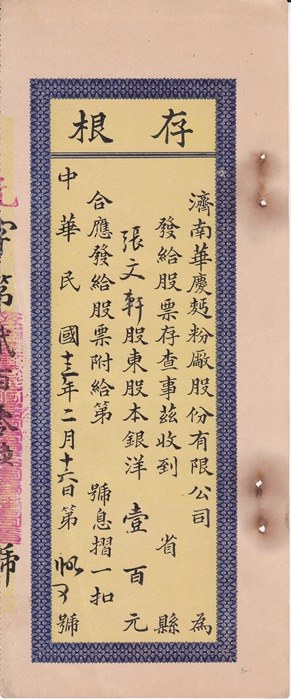 存根
濟南華慶麪粉廠股份有限公司 為
發給股票存查事茲收到 省 縣
張文軒股東股本銀洋 壹百元
合應發給股票附給第 號息摺一扣
中華民國十三年二月十六日第 號
字第貳百 號